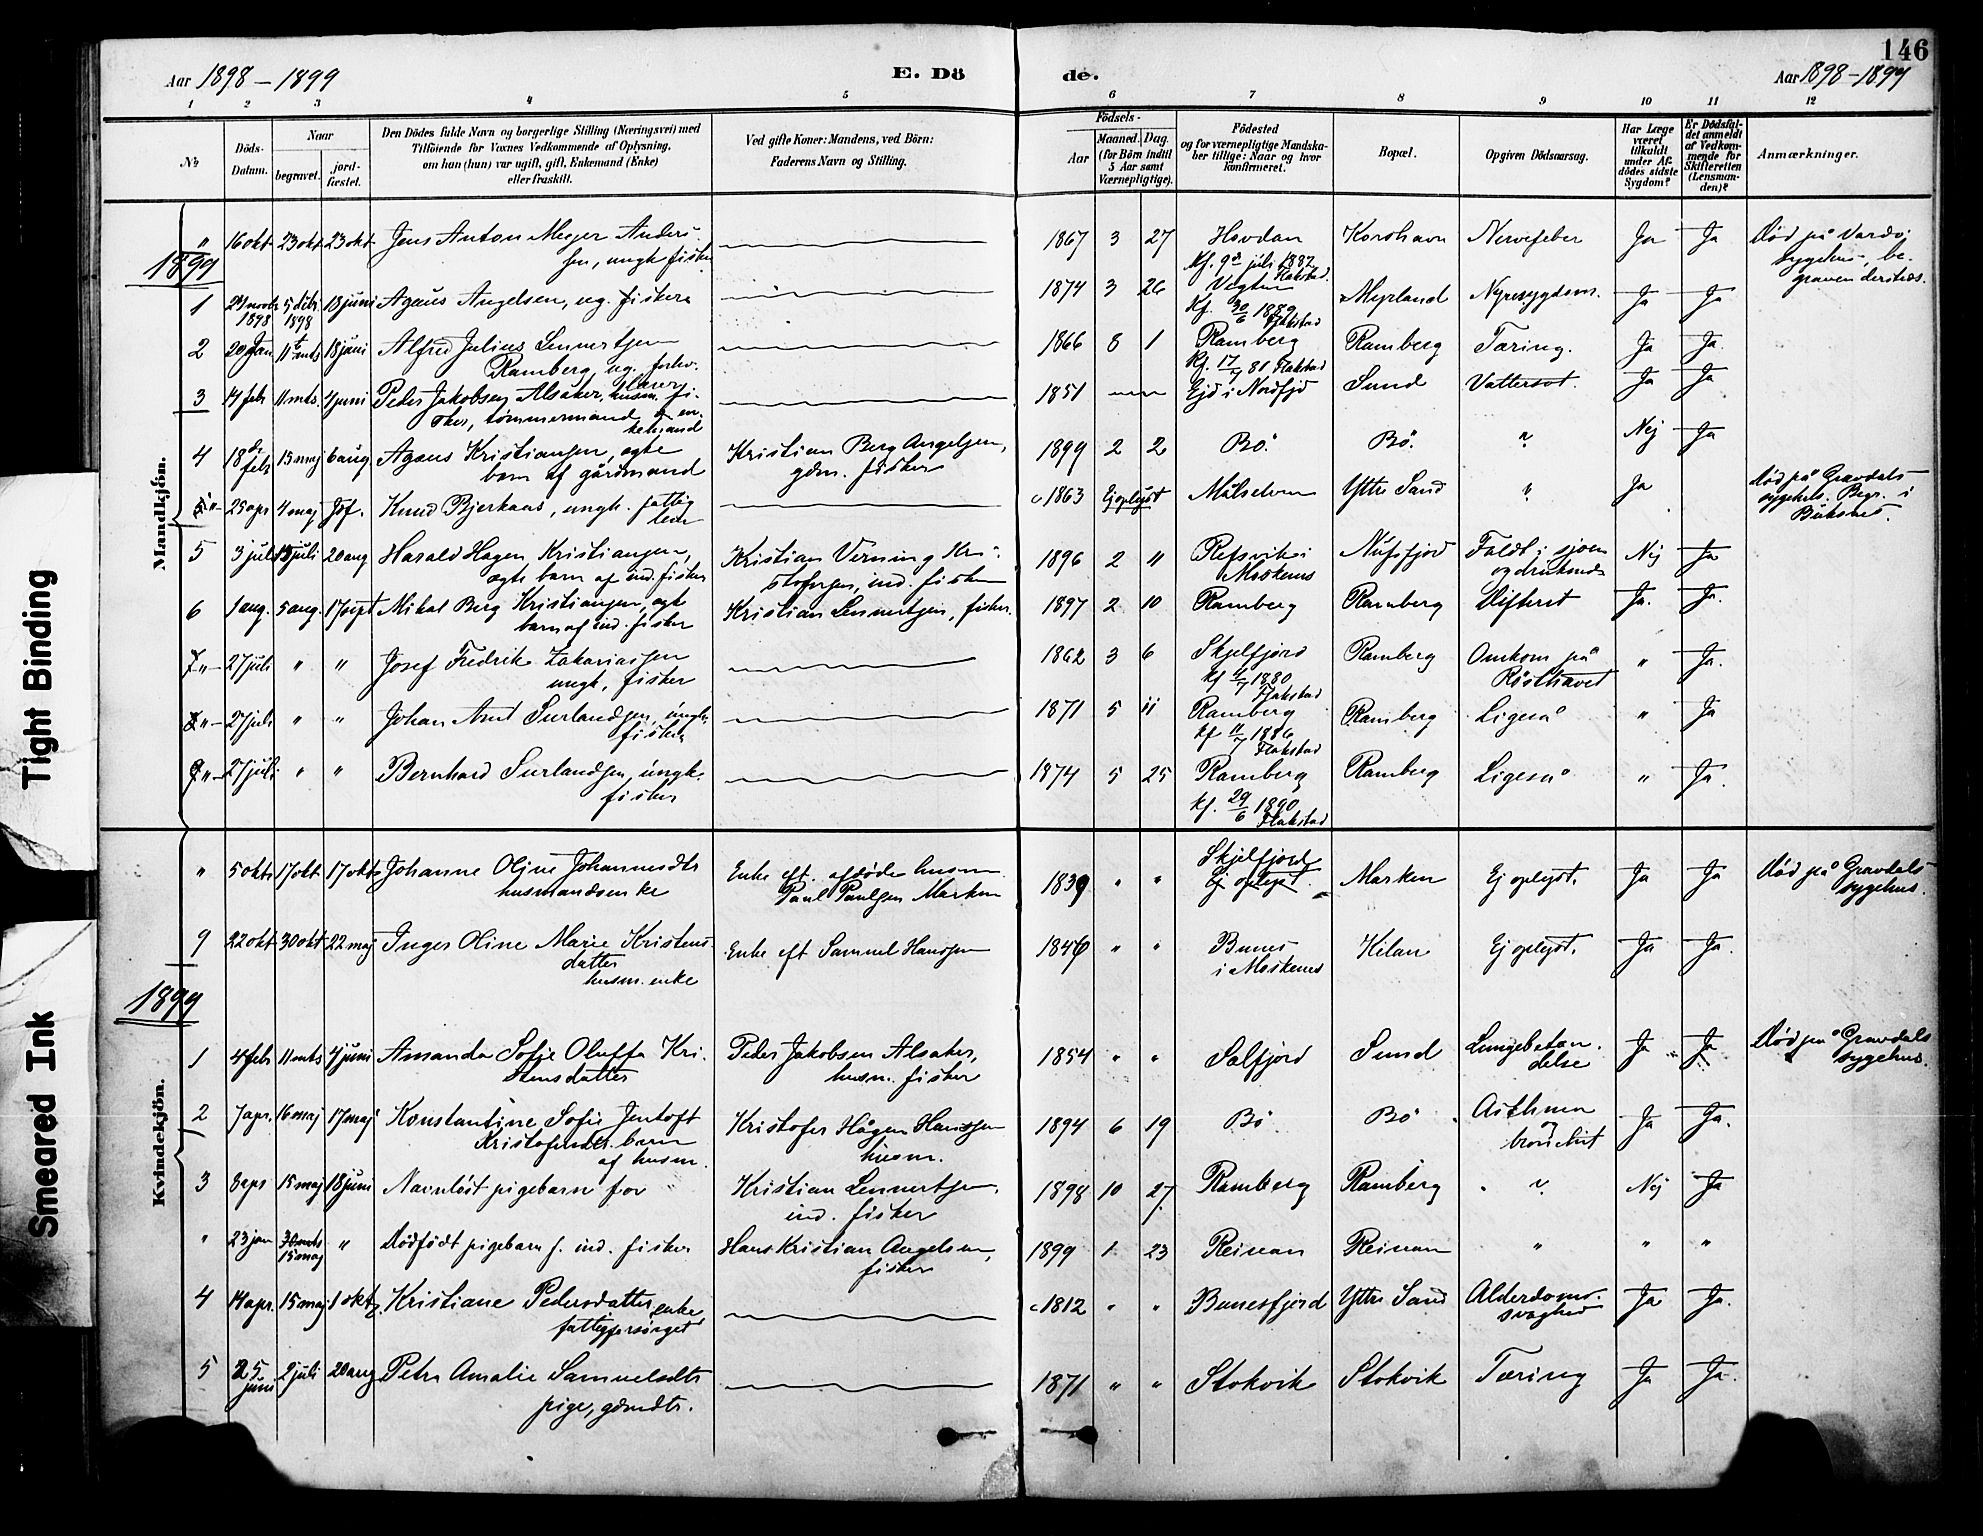 146
Aar 1898 – 1899 E. Dö de. Aar 1898 – 1899
1 2 3 4 5 6 7 8 9 10 11 12
No
Döds-Datum.
Naar
begravet.
jord-fæstet.
Den Dödes fulde Navn og borgerlige Stilling (Næringsvei) med
Tilföiende for Voxnes Vedkommende af Oplysning,
om han (hun) var ugift, gift, Enkemand (Enke)
eller fraskilt.
Ved gifte Koner: Mandens, ved Börn:
Faderens Navn og Stilling.
Födsels-
Aar
Maaned. Dag.
(for Börn indtil
5 Aar samt
Værnepligtige).
Födested
og for værnepligtige Mandska-
ber tillige: Naar og hvor
konfirmeret.
Bopæl.
Opgiven Dödsaarsag.
Har Læge
været
tilkaldt
under Af-
dödes sidste
Sygdom?
Er Dödsfal-
det anmeldt
af Vedkom-
mende for
Skifteretten
(Lensman-
den)?
Anmærkninger.
Mandkjön.
" 16 okt 23 okt 23 okt Jens Anton Meyer Ander- 1867 3 27 Hovdan Korshavn Nervefeber Ja Ja Död på Vardö
sen, ungk fisker Kf. 9de juli 1882 Flakstad sygehus, be-
graven dersteds.
1899
1 18 juni Agæus Angelsen, ug. fisker 1874 3 26 Myrland Nyresygdom. Ja Ja
1898 1898 Kf. 30/6 1889 Flakstad
2 20 Jan 11te mts 18 juni Alfred Julius Lennertsen 1866 8 1 Ramberg Ramberg Tæring. Ja Ja.
Ramberg, ug. Kf. 17/7 81 Flakstad
3 4 febr 11 mts. 4 juni Peder Jakobsen Alsaker, husm. fi- 1851 Ejd i Nordfjd Sund Vattersot. Ja Ja
sker, tømmermand og en-
kemand
4 18de febr 15 maj 6 aug Agæus Kristiansen, ægte Kristian Berg Angelsen, 1899 2 2 Bö. Bö. ? Nej Ja
barn af gårdmand gdm. fisker
" 25 apr 4 maj Knud Bjerkaas, ungk. fattig- c 1863 Ej oplyst Målselven Ytre Sand " Ja Död på Gravdals
lem sygehus. Begr. i
Buksnes.
5 3 juli 15 juli 20 aug Harald Hagen Kristiansen, Kristian Verning Kri- 1896 2 " Refsvik i Nufsfjord Faldt i sjøen Nej Ja
ægte barn af ind. fisker stofersen, ind. fisker Moskenes og druknede
6 1 aug. 5 aug. 17 sept Mikal Berg Kristiansen, ægte Kristian Lennertsen, fisker. 1897 2 10 Ramberg Ramberg Difterit Ja. Ja.
barn af ind. fisker
" 27 juli " " Josef Fredrik Zakariassen 1862 3 6 Skjelfjord Ramberg Omkom på " Ja.
ungk, fisker kf 1880 Flakstad Rösthavet
" 27 juli " " Johan Arnt Surlandsen, ungk. 1871 5 11 Ramberg Ramberg Ligeså " Ja
fisker kf 11/7 1886 Flakstad
" 27 juli " " Bernhard Surlandsen, ungk. 1874 5 25 Ramberg Ramberg Ligeså " Ja.
fisker kf. 29/6 1890 Flakstad
Kvindekjön.
" 5 okt 17 okt 17 okt Johanne Oline Johannesdtr Enke eft. afdöde husm. 1839 " " Skjelfjord Marken Ej oplyst. Ja Ja Död på Gravdals
husmandsenke Paul Paulsen Marken Ej oplyst. sygehus.
9 22 okt 30 okt 22 maj Inger Oline Marie Kristens- Enke eft Samuel Hanssen 1846 " " Bunes Kilan Ej oplyst. Ja Ja.
datter i Moskenes
husm. enke
1899
1 4 febr 11 mts 4 juni Amanda Sofie Oluffa Kri- Peder Jakobsen Alsaker, 1854 " " Solfjord Sund Lungebetæn- Ja Ja Död på Gravdals
stensdatter husm. fisker delse sygehus.
2 7 apr. 16 maj 17 maj Konstantine Sofie Jentoft Kristofer Hågen Hanssen 1894 6 19 Bö Bö Asthma Ja Ja.
Kristofersdtr. barn husm. og
af husm. bronchit
3 8 apr 15 maj 18 juni Navnlöst pigebarn for Kristian Lennertsen, 1898 10 27 Ramberg Ramberg ? Nej Ja
ind. fisker
" 23 jan 30 mts " Dödfödt pigebarn f. ind. fisker Hans Kristian Angelsen, 1899 1 23 Reinan Reinan " " "
15 maj fisker
4 14 apr. 15 maj 1 okt Kristiane Pedersdatter, enke c 1812 " " Bunesfjord Ytre Sand Alderdoms- Ja Ja.
fattigforsörget svaghed
5 25 2 juli 20 aug Petra Amalie Samuelsdtr 1871 " " Stokvik Stokvik Tæring Ja Ja.
juni pige, gdmdtr.
Tight Binding
Smeared Ink